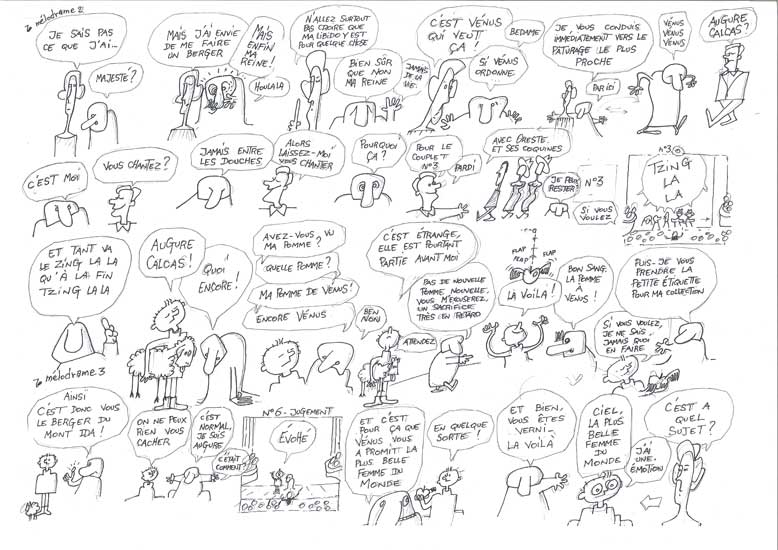 mélodrame 2
JE SAIS PAS
CE QUE J'AI...
MAJESTÉ ?
MAIS J'AI ENVIE
DE ME FAIRE
UN BERGER
MAIS
ENFIN
MA
REINE !
HOULALA
N'ALLEZ SURTOUT
PAS CROIRE QUE
MA LIBIDO Y EST
POUR QUELQUE CHOSE
BIEN SÛR
QUE NON
MA REINE
JAMAIS
DE LA
VIE.
C'EST VÉNUS
QUI VEUT
ÇA !
BEDAME
SI VÉNUS
ORDONNE
JE VOUS CONDUIS
IMMÉDIATEMENT VERS LE
PÂTURAGE LE PLUS
PROCHE
PAR ICI
VÉNUS
VÉNUS
VÉNUS
AUGURE
CALCAS ?
C'EST MOI
VOUS CHANTEZ ?
JAMAIS ENTRE
LES DOUCHES
ALORS
LAISSEZ-MOI
VOUS CHANTER
POURQUOI
ÇA ?
POUR LE
COUPLET
N°3
PARDI
AVEC ORESTE
ET SES COQUINES
JE PEUX
RESTER ?
N°3
SI VOUS
VOULEZ
N°3
TZING
LA
LA
ET TANT VA
LE ZING LA LA
QU'À LA FIN
TZING LA LA
AUGURE
CALCAS !
QUOI
ENCORE !
AVEZ-VOUS VU
MA POMME ?
QUELLE POMME ?
MA POMME DE VÉNUS !
ENCORE VÉNUS
BEN
NON !
C'EST ÉTRANGE,
ELLE EST POURTANT
PARTIE AVANT MOI
PAS DE NOUVELLE
POMME NOUVELLE.
VOUS M'EXCUSEREZ,
UN SACRIFICE
TRÈS EN RETARD
ATTENDEZ
FLAP
FLAP
FLAP
LA VOILÀ !
BON SANG,
LA POMME
À
VÉNUS !
PUIS-JE VOUS
PRENDRE LA
PETITE ÉTIQUETTE
POUR MA COLLECTION
SI VOUS VOULEZ,
JE NE SAIS
JAMAIS QUOI
EN FAIRE
mélodrame 3
AINSI
C'EST DONC VOUS
LE BERGER DU
MONT IDA !
ON NE PEUX
RIEN VOUS
CACHER
C'EST
NORMAL,
JE SUIS
AUGURE
C'ÉTAIT
COMMENT ?
N°6 - JUGEMENT
ÉVOHÉ
ET C'EST
POUR ÇA QUE
VÉNUS VOUS
A PROMITT LA
PLUS BELLE
FEMME DU
MONDE
EN QUELQUE
SORTE !
ET BIEN,
VOUS ÊTES
VERNI.
LA VOILÀ
CIEL,
LA PLUS
BELLE
FEMME
DU
MONDE
J'AI
UNE
ÉMOTION
C'EST A
QUEL
SUJET ?